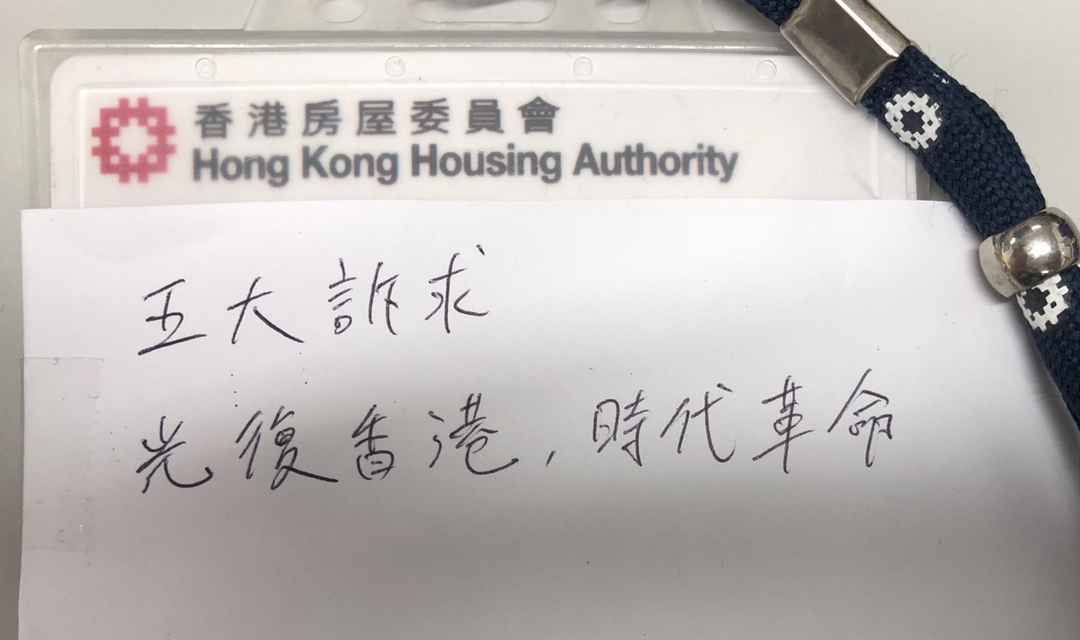 香港房屋委員會
Hong Kong Housing Authority
五大訴求
光復香港，時代革命